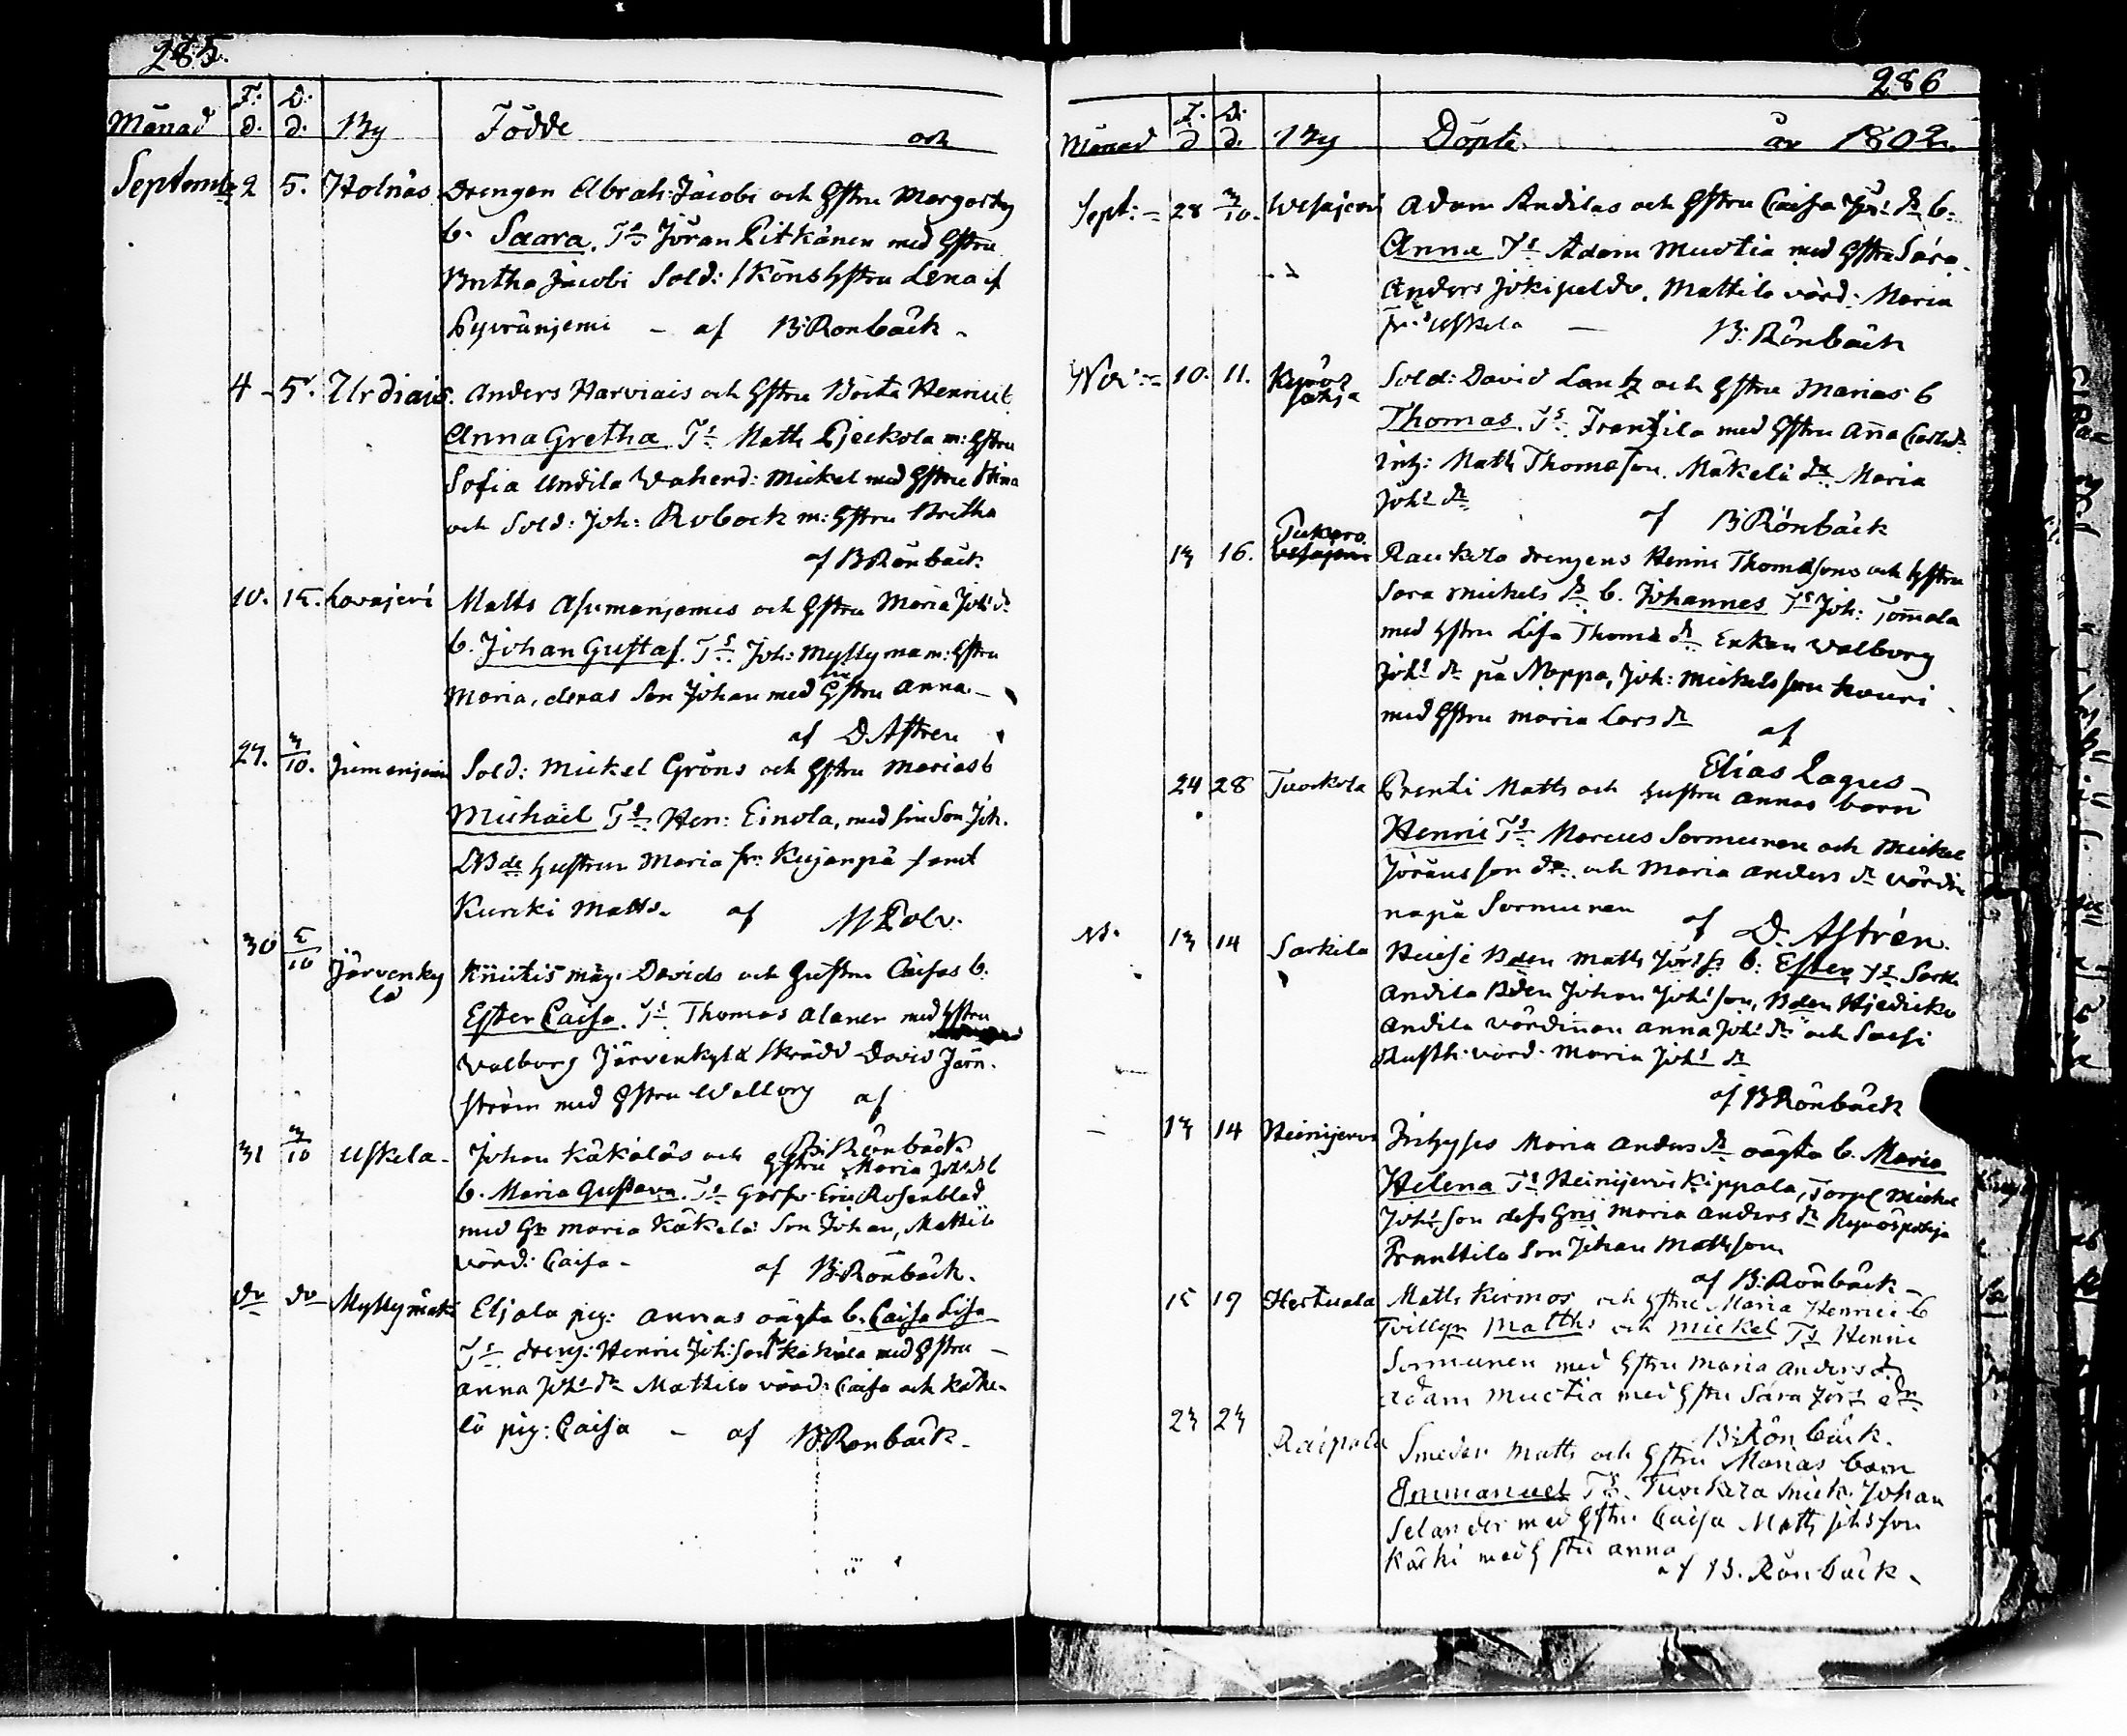 285.
Månad F: d. D: d. By Födde och
Septembr 2 5. Holnäs Drengen Abrah: Jacobs och Hstru Margaretæ
b. Saara. Ts Jöran Pitkänen med Hstru
Britha Jacobi Sold: Sköns Hstru Lena if
Hyvränjemi – af B: Rönbäck –
4 – 5. Urdiais. Anders Harviais och Hstru Brita Henriks b.
Anna Gretha Ts Matts Pjeckola m: Hstru
Sofia Undila Waherd: Mickel med Hstru Stina
och Sold: Joh: Robock m: Hstru Britha
af B Rönbäck
10. 15. Lavajervi Matts Asumanjemis och Hstru Maria Johs dr
b. Johan Gustaf. Ts Joh: Myllyma m: Hstru
Maria, deras Son Johan med Hstru Anna –
af D. Astren
27. 3/10. Jumenjemi Sold: Mickel Gröns och Hstru Marias b
Michaël Ts Hen: Einola, med sin Son Joh.
LBde Hustrun Maria fr: Kujanpä samt
Kurcki Matts. af M Polv.
30 5/10 Järvenkylä Knutis måg: Davids och Hustru Caisas b.
Ester Caisa. Ts Thomas Alaner med Hstru
Valborg Järvenkylä Skrädd David Järn-
ström med Hstru Walborg af
B: Rönbäck
31 3/10 Uskela – Johan Käkäläs och Hstru Maria Johs dr
b. Maria Gustava. Ts Garfv: Eric Rosenblad
med Hr Maria Käkelä Son Johan, Mattila
värd: Caisa – af B: Rönbäck.
do do Myllymäki Eljala pig: Annas oägta b. Caisa Lisa
Ts dreng: Henric Joh: Son Käkäla med Hstru –
Anna Johs dr Mattila värd: Caisa och Käke-
lä pig: Caisa – af B: Rönbäck –
286
Månad F. d D: d. By Döpte år 1802.
Sept: – 28 3/10. Wesajervi Adam Andilas och Hstru Caisa Jör: dr b:
Anna Ts Adam Muotia med Hstru Sara
Anders Jokipeldo, Mattila värd: Maria
fr: Uskela – B: Rönbäck
Nov: – 10. 11. Kyrös pohja Sold: David Lantz och Hstru Marias b
Thomas. Ts Frantzila med Hstru Anna Carls dr
Inh: Matts Thomasson. Mäkelä dr Maria
Johs dr
af B Rönbäck
13 16. Tuokero Rautkero drengens Henric Thomassons och Hstru
Sara Mickels dr b. Johannes Ts Joh: Tommola
med Hstru Lisa Thoms dr Enkan Walborg
Johs dr på Noppa, Joh: Mickelsson Kouri
med Hstru Maria Lars dr af
Elias Lagus –
24 28 Tuokola Prenti Matts och Hustru Annas barn
Henric Ts Marcus Sormunen och Mickel
Jöransson do och Maria Anders dr värdin
na på Sormunen af D. Astrén.
N. 13 14 Sarkila Heisi Bden Matts Jörs b: Ester Ts Sark:
Andila Bden Johan Johsson, Bden Hjedicko
Andila värdinnan Anna Johs dr och Saesi
Rusth: värd: Maria Johs dr
af B Rönbäck
– 13 14 Heinijervi Inhyses Maria Anders dr oägta b. Maria
Helena Ts Heinijervi Kippala, Torp: Mickel
Johsson dess Maria Anders dr Kyröspohja
Franttila Son Johan Mattsson
af B: Rönbäck –
15 19 Hertuala Matts Kirmos och Hstru Maria Henrici b
Tvillgr Matths och Mickel Ts Henric
Sormunen med Hstru Maria Anders dr
Adam Muotia med Hstru Sara Jörs dr
B: Rönbäck.
23 23 Raipala Smeden Matts och Hstru Marias barn
Emmanuel Ts Tuokola snick: Johan
Selander med Hstru Caisa Matts Johsson
Käcki med Hstru Anna
af B. Rönbäck –